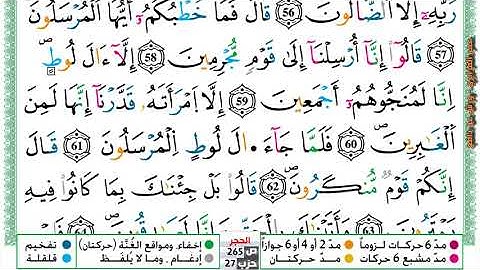 رَبِّهِۦٓ إِلَّا ٱلضَّآلُّونَ ٥٦ قَالَ فَمَا خَطْبُكُمُۥٓ أَيُّهَا ٱلْمُرْسَلُونَ
٥٧ قَالُوٓا۟ إِنَّآ أُرْسِلْنَآ إِلَىٰ قَوْمٍ مُّجْرِمِينَ ٥٨ إِلَّآ ءَالَ لُوطٍ
إِنَّا لَمُنَجُّوهُمُۥٓ أَجْمَعِينَ ٥٩ إِلَّا ٱمْرَأَتَهُۥ قَدَّرْنَآ إِنَّهَا لَمِنَ
ٱلْغَٰبِرِينَ ٦٠ فَلَمَّا جَآءَ ا۬لَ لُوطٍ ٱلْمُرْسَلُونَ ٦١ قَالَ
إِنَّكُمْ قَوْمٌ مُّنكَرُونَ ٦٢ قَالُوا۟ بَلْ جِئْنَٰكَ بِمَا كَانُوا۟ فِيهِ
٦٣
مدّ 6 حركات لزوماً مدّ 2 أو 4 أو 6 جوازاً الحجر ص 265 إخفاء، ومواقع الغُنَّة (حركتان) تفخيم
مدّ مشبع 6 حركات مدّ حركتان حزب 27 إدغام، وما لا يُلفَظ قلقلة